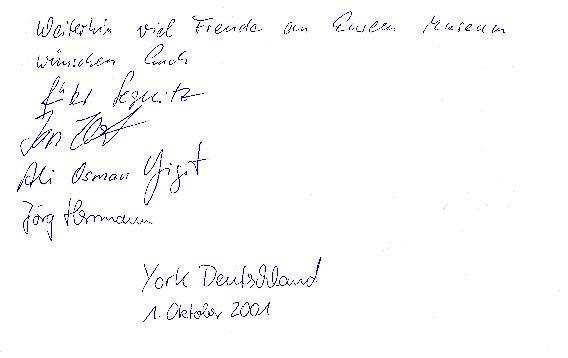 Weiterhin viel Freude an Eurem Museum
wünschen Euch
Jan
Ali Osman Yigit
Jörg Herrmann
York Deutschland
1. Oktober 2001